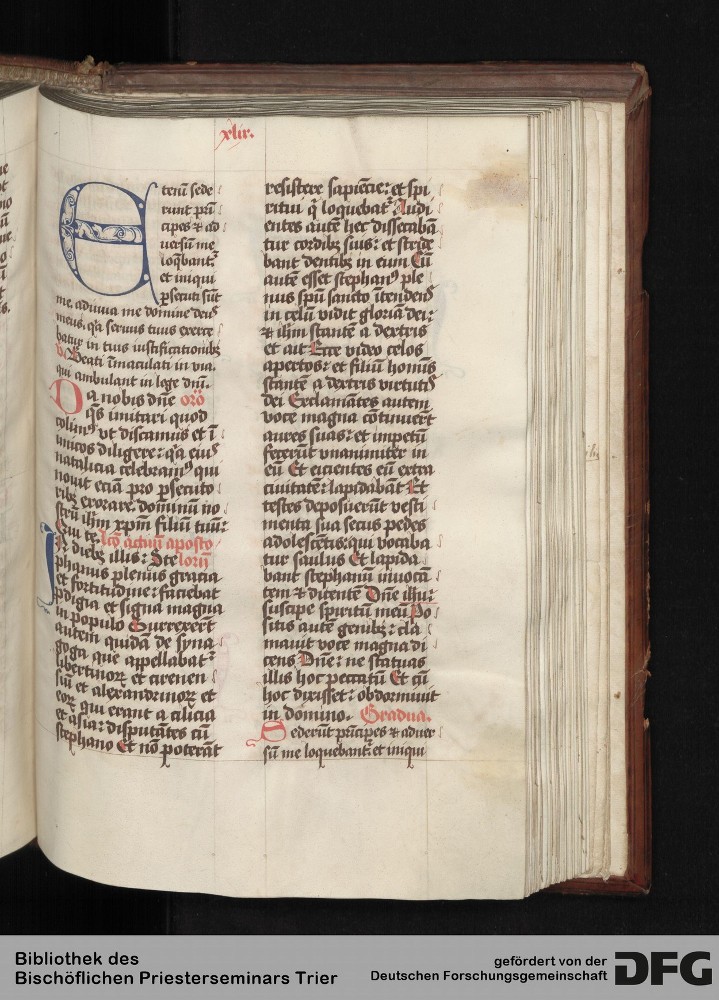 xlix.
Eteniꝫ sede
runt pri̅
cipes ⁊ ad
uersu̅ me
loq̅bant᷑
et iniqui
p̲secuti su̅t
me. adiuua me domine deꝰ
meus, qꝛ seruus tuus exerce
batur in tuis iustificationibꝫ
V̊ Beati i̅maculati in via.
qui ambulant in lege dn̅i.
Da nobis dn̅e oro̅
q̅s imitari quod
colimꝰ vt discamus et i̅
imicos diligere: qꝛ eiꝰ
natalicia celebramꝰ qui
nouit ecia̅ pro p̲secuto
ribꝫ exorare. dominu̅ no
stru̅ ihm xpm filiu̅ tuu̅:
Qui te. lcō actuu̅ aposto
In diebꝫ illis: Ste loru̅
phanus plenus gracia
et fortitudine: faciebat
p̲digia et signa magna
in populo Surrexeru̅t
autem quida̅ de syna
goga que appellabat᷑
libertinoꝝ et cirenen
siu̅ et alexandrinoꝝ et
eoꝝ qui erant a cilicia
et asia: disputa̅tes cu̅
stephano Et no̅ potera̅t
resistere sapiencie: et spi
ritui q̇ loquebat᷑. Audi
entes aute̅ hec dissecaba̅
tur cordibꝫ suis: et stride
bant dentibꝫ in eum Cu̅
aute̅ esset stephanꝰ ple
nus spu̅ sancto i̅tendenꝰ
in celu̅ vidit gloria̅ dei:
⁊ ihm stante̅ a dextris
et ait Ecce video celos
apertos: et filiu̅ hominꝭ
stante̅ a dextris virtutꝭ
dei Exclama̅tes autem
voce magna continueru̅t
aures suas: et impetu̅
feceru̅t vnanimiter in
eu̅ Et eicientes eu̅ extra
ciuitate̅: lapidaba̅t Et
testes deposueru̅t vesti
menta sua secus pedes
adolesce̅tis: qui vocaba
tur saulus Et lapida
bant stephanu̅ inuoca̅
tem ⁊ dicente̅ Dn̅e ihu:
suscipe spiritu̅ meu̅ Po
sitis aute̅ genibꝫ: cla
mauit voce magna di
cens Dn̅e: ne statuas
illis hoc peccatu̅ Et cu̅
hoc dixisset: obdormiuit
in domino. Gradua.
Sederu̅t pri̅cipes ⁊ aduer
su̅ me loquebant᷑. et iniqui
Bibliothek des
Bischöflichen Priesterseminars Trier
gefördert von der
Deutschen Forschungsgemeinschaft
DFG